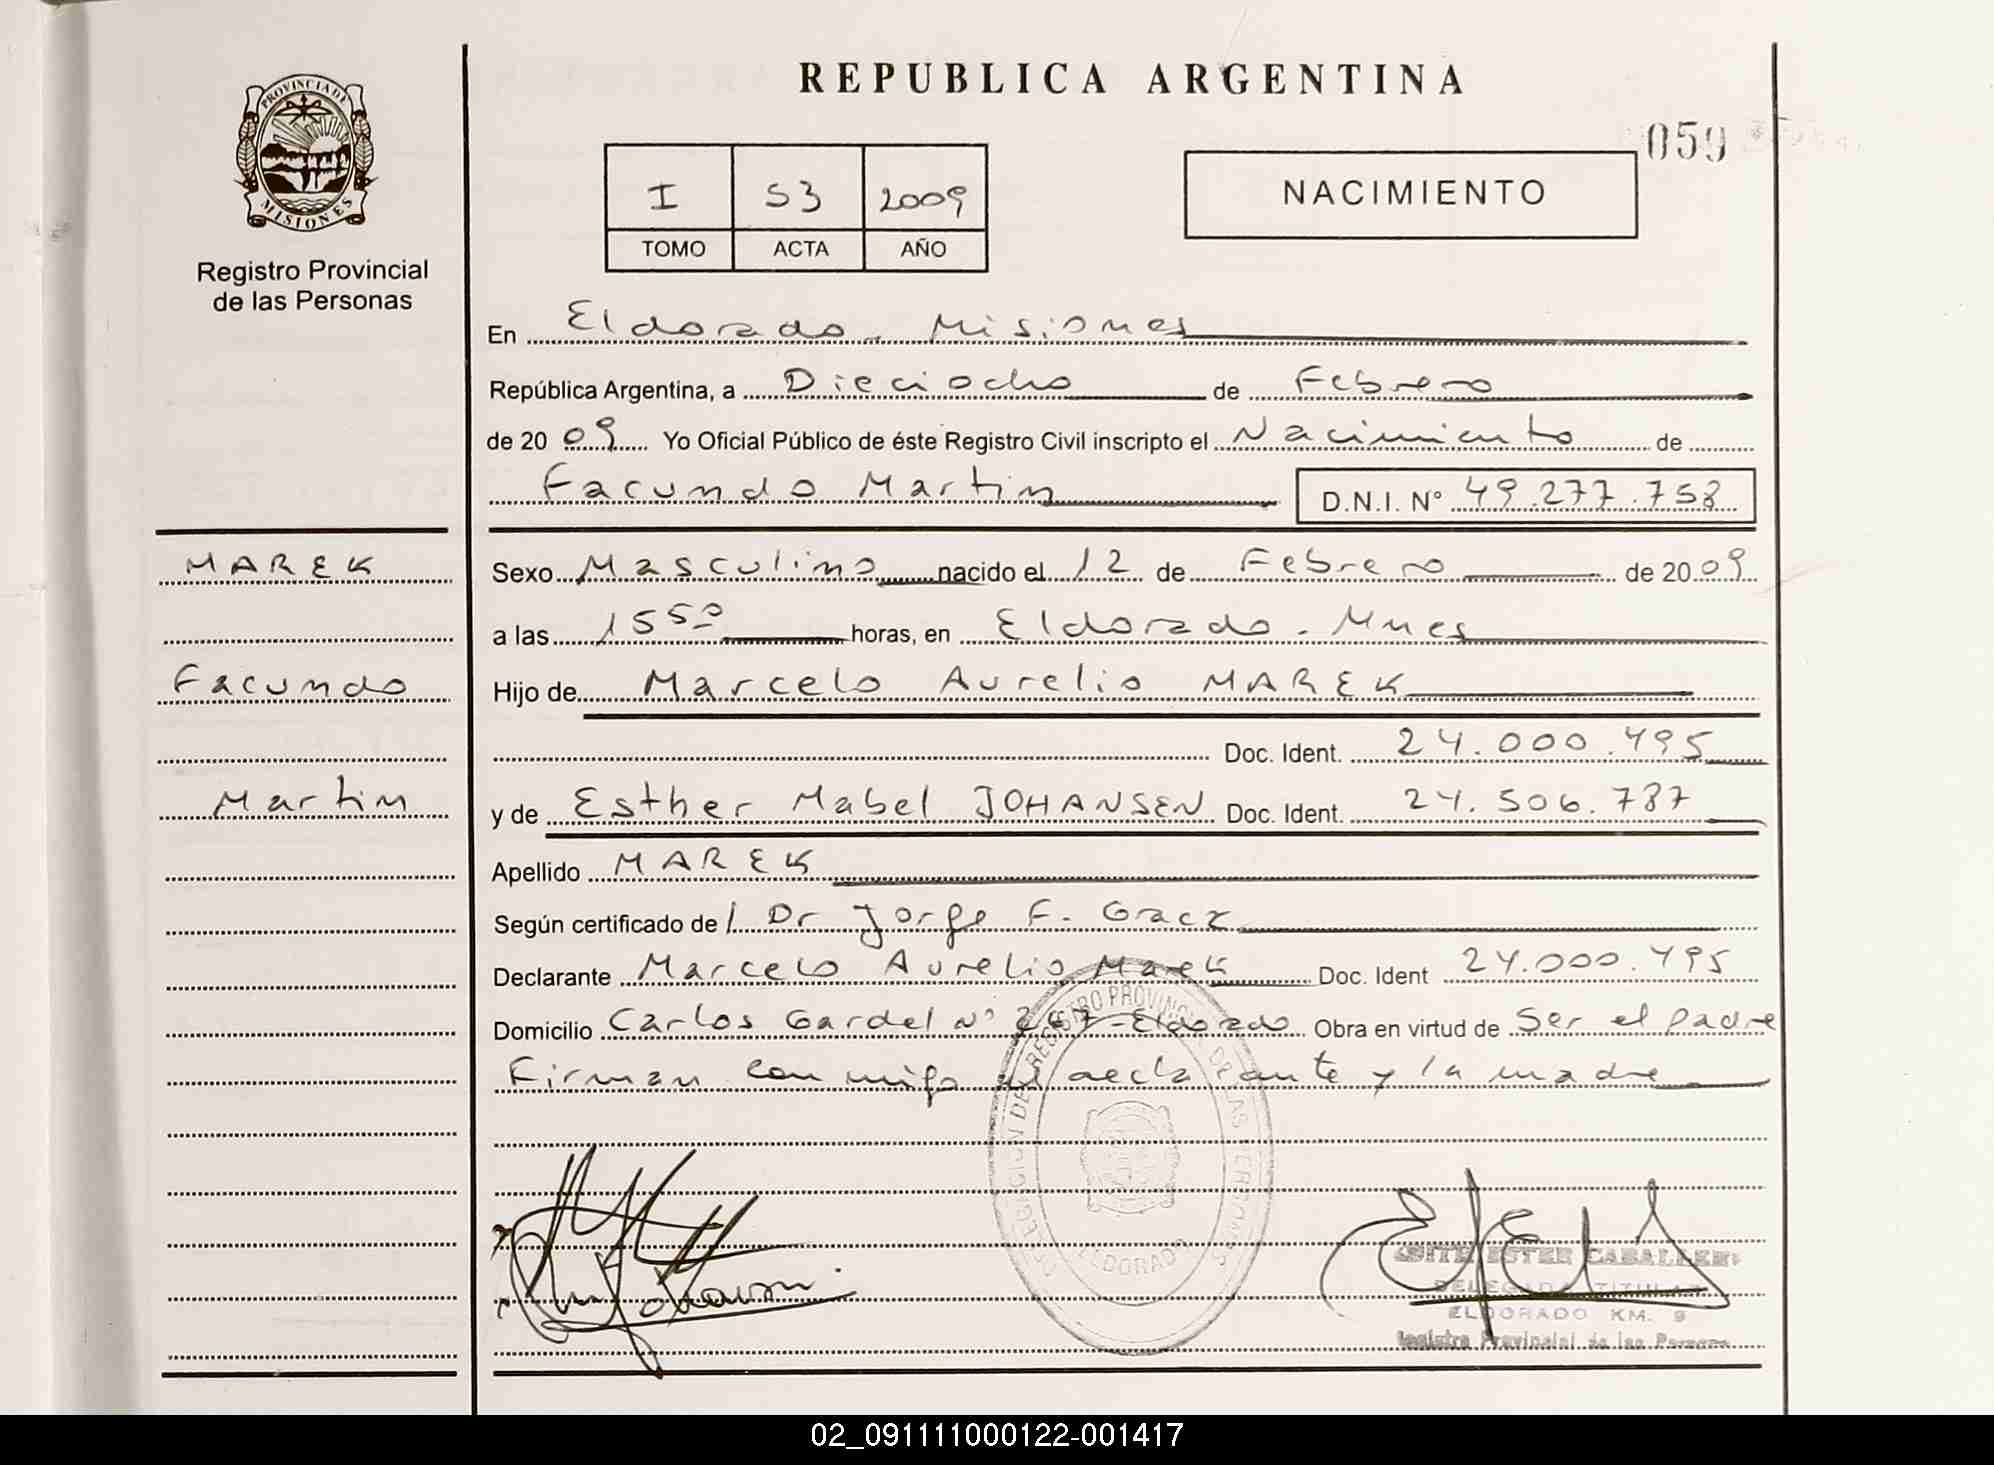 REPUBLICA ARGENTINA
059
PROVINCIA DE
MISIONES
Registro Provincial
de las Personas
I 53 2009
TOMO ACTA AÑO
NACIMIENTO
En Eldorado - Misiones
República Argentina, a Dieciocho de Febrero
de 20 09 Yo Oficial Público de éste Registro Civil inscripto el Nacimiento de
Facundo Martin D.N.I. N° 49.277.758
MAREK
Sexo Masculino nacido el 12 de Febrero de 20 09
a las 15 50 horas, en Eldorado - Mnes
Facundo
Hijo de Marcelo Aurelio MAREK
Doc. Ident. 24.000.495
Martin
y de Esther Mabel JOHANSEN Doc. Ident. 24.506.787
Apellido MAREK
Según certificado de Dr Jorge F. Gracz
Declarante Marcelo Aurelio Marek Doc. Ident 24.000.495
Domicilio Carlos Gardel N° 267 - Eldorado Obra en virtud de Ser el padre
Firman conmigo el declarante y la madre
DELEGACION DEL REGISTRO PROVINCIAL DE LAS PERSONAS
ELDORADO
EDITH ESTER CABALLERO
DELEGADA TITULAR
ELDORADO KM. 9
Registro Provincial de las Personas
02_091111000122-001417